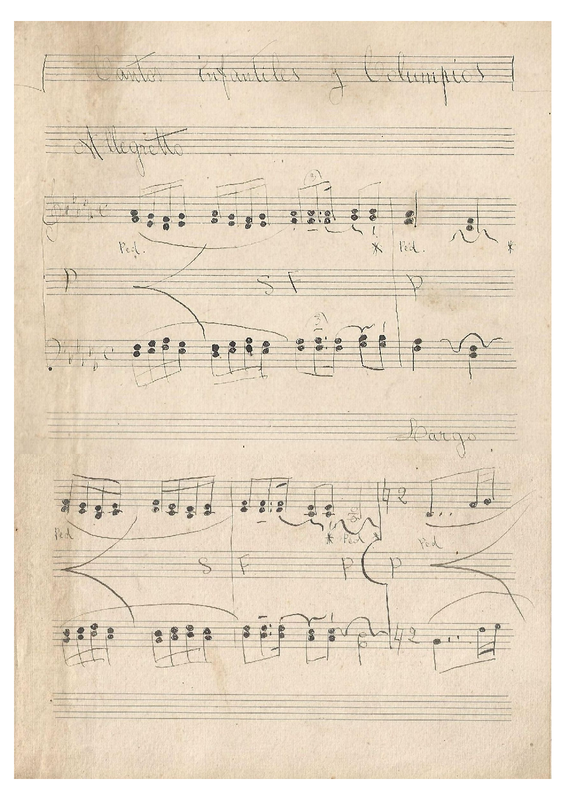 Cantos infantiles y Columpios
Allegretto
Ped. * Ped. *
P S F P
Largo
Ped * Ped * Ped
S F P P
4 2
4 2